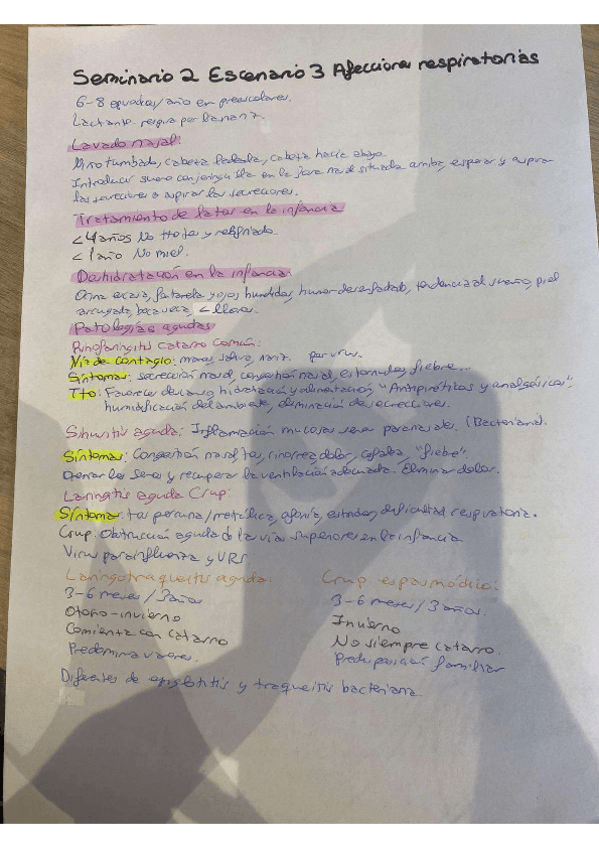 Seminario 2 Escenario 3 Afecciones respiratorias
6-8 episodios/año en preescolares.
Lactante respira por la nariz.
Lavado nasal:
Niño tumbado, cabeza ladeada, cabeza hacia abajo.
Introducir suero con jeringuilla en la fosa nasal situada arriba, esperar y aspirar
las secreciones o aspirar las secreciones.
Tratamiento de la tos en la infancia
<4años No tto tos y resfriado.
<1 año No miel.
Deshidratación en la infancia:
Orina escasa, fontanela y ojos hundidos, humor desenfadado, tendencia al sueño, piel
arrugada, boca seca, < lloros.
Patologías agudas
Rinofaringitis catarro común:
Vía de contagio: manos, saliva, nariz. por virus.
Síntomas: secreción nasal, congestión nasal, estornudos, fiebre...
Tto: Favorecer descanso, hidratación y alimentación, "Antipiréticos y analgésicos",
humidificación del ambiente, eliminación de secreciones.
Sinusitis aguda: Inflamación mucosas senos paranasales. (Bacteriana).
Síntomas: Congestión nasal, tos, rinorrea, dolor, cefalea, "fiebre".
Drenar los senos y recuperar la ventilación adecuada. Eliminar dolor.
Laringitis aguda Crup:
Síntomas: tos perruna/metálica, afonía, estridor, dificultad respiratoria.
Crup: Obstrucción aguda de las vías superiores en la infancia
Virus parainfluenza y VRS.
Laringotraqueitis aguda: Crup espasmódico:
3-6 meses/3años 3-6 meses/3 años.
Otoño-invierno Invierno
Comienza con catarro No siempre catarro.
Predomina varones. Predisposición familiar
Diferentes de epiglotitis y traqueitis bacteriana.